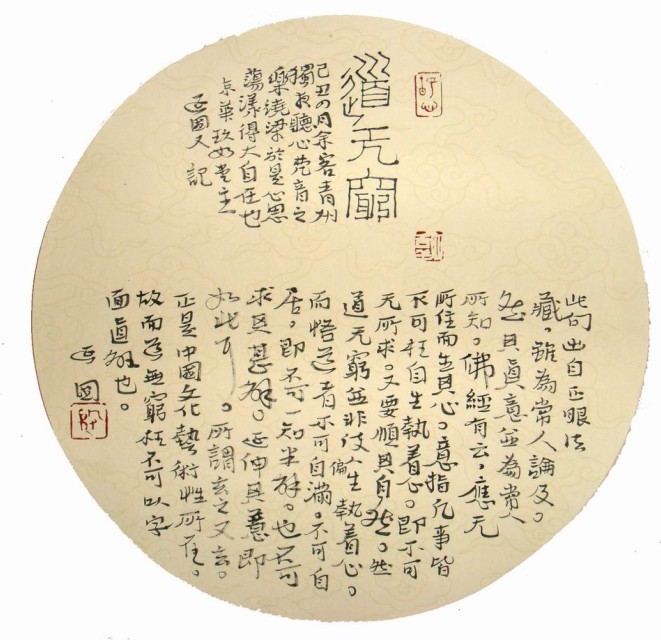 道无窮
己丑四月余客青州
獨夜聽心梵音之
樂繞梁於是心思
蕩漾得大自在也
京華玖如堂主
正國又記
此句出自正眼法
藏。雖為常人論及。
然其真意並為常人
所知。佛經有云，應无
所住而生其心。意指凡事皆
不可枉自生執着心。即不可
无所求。又要順其自然。然
道无窮並非仅人偏生執着心。
而悟道者亦可自滿。不可自
居，即不可一知半解。也不可
求其甚解。延伸其意即
如此可。所謂玄之又玄。
正是中國文化藝術性所在。
故而道無窮枉不可以字
面直解也。
正國